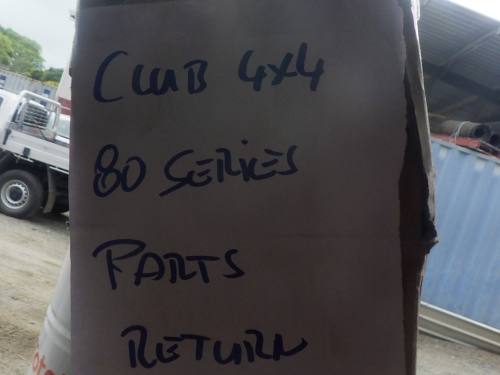 CLUB 4x4
80 SERIES
PARTS
RETURN